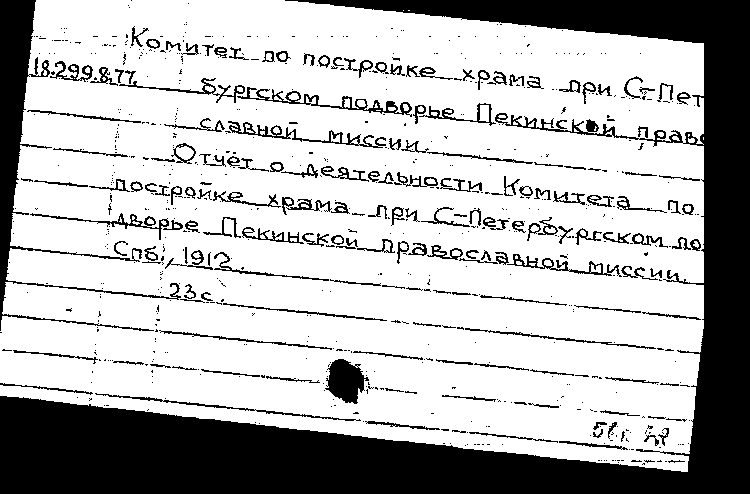 Комитет по постройке храма при С-Пет
18.299.8.77.
бургском подворье Пекинской право
славной миссии.
Отчёт о деятельности Комитета по
постройке храма при С-Петербургском по
дворье Пекинской православной миссии.
Спб., 1912.
23с.